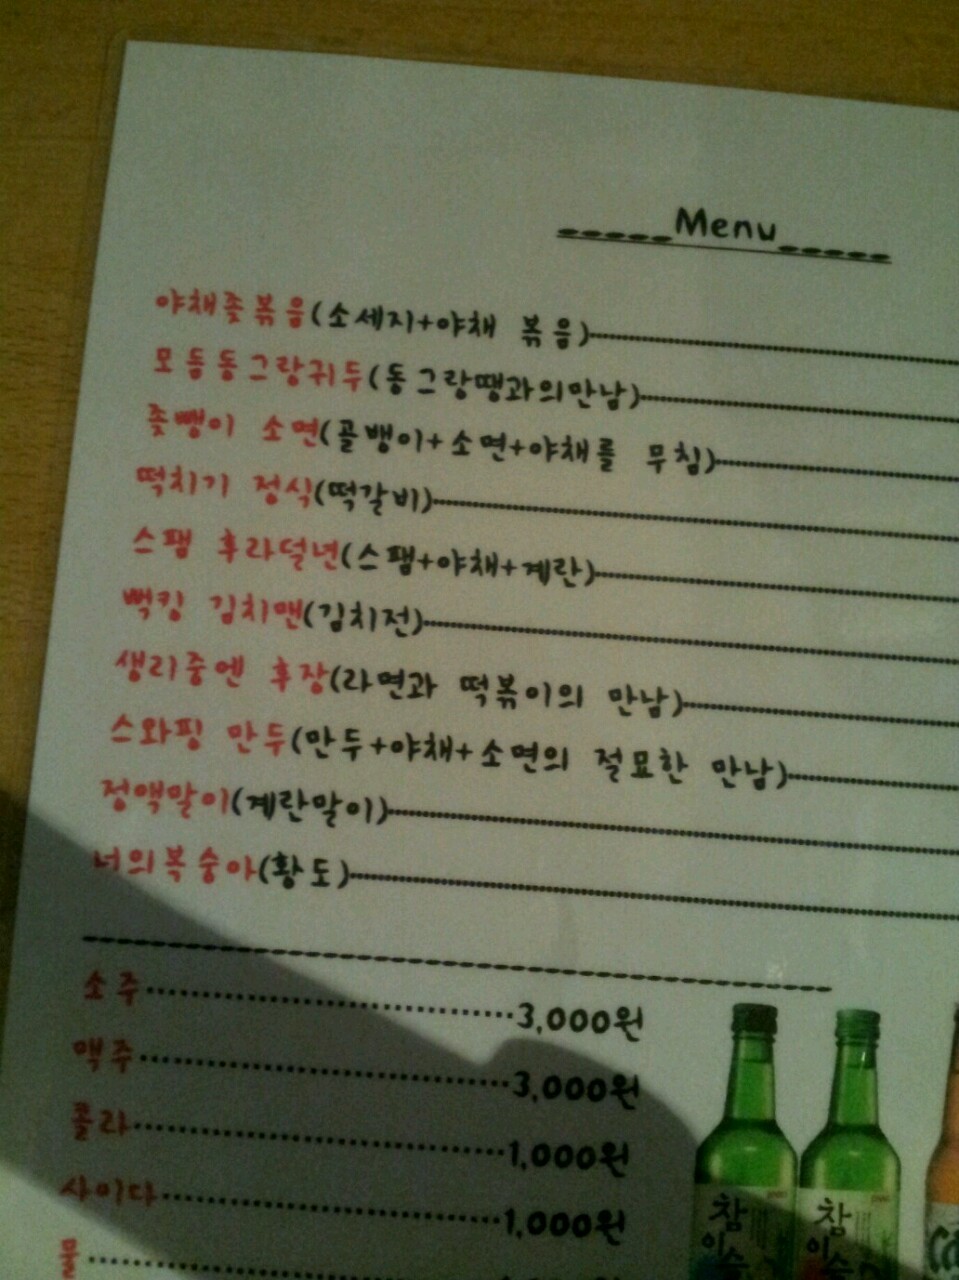 Menu
야채좆볶음(소세지+야채 볶음)
모듬동그랑귀두(동그랑땡과의만남)
좆뺑이 소면(골뱅이+소면+야채를 무침)
떡치기 정식(떡갈비)
스팸 후라덜년(스팸+야채+계란)
뻑킹 김치맨(김치전)
생리중엔 후장(라면과 떡볶이의 만남)
스와핑 만두(만두+야채+소면의 절묘한 만남)
정액말이(계란말이)
너의복숭아(황도)
소주 3,000원
맥주 3,000원
콜라 1,000원
사이다 1,000원
물
참이슬 참이슬